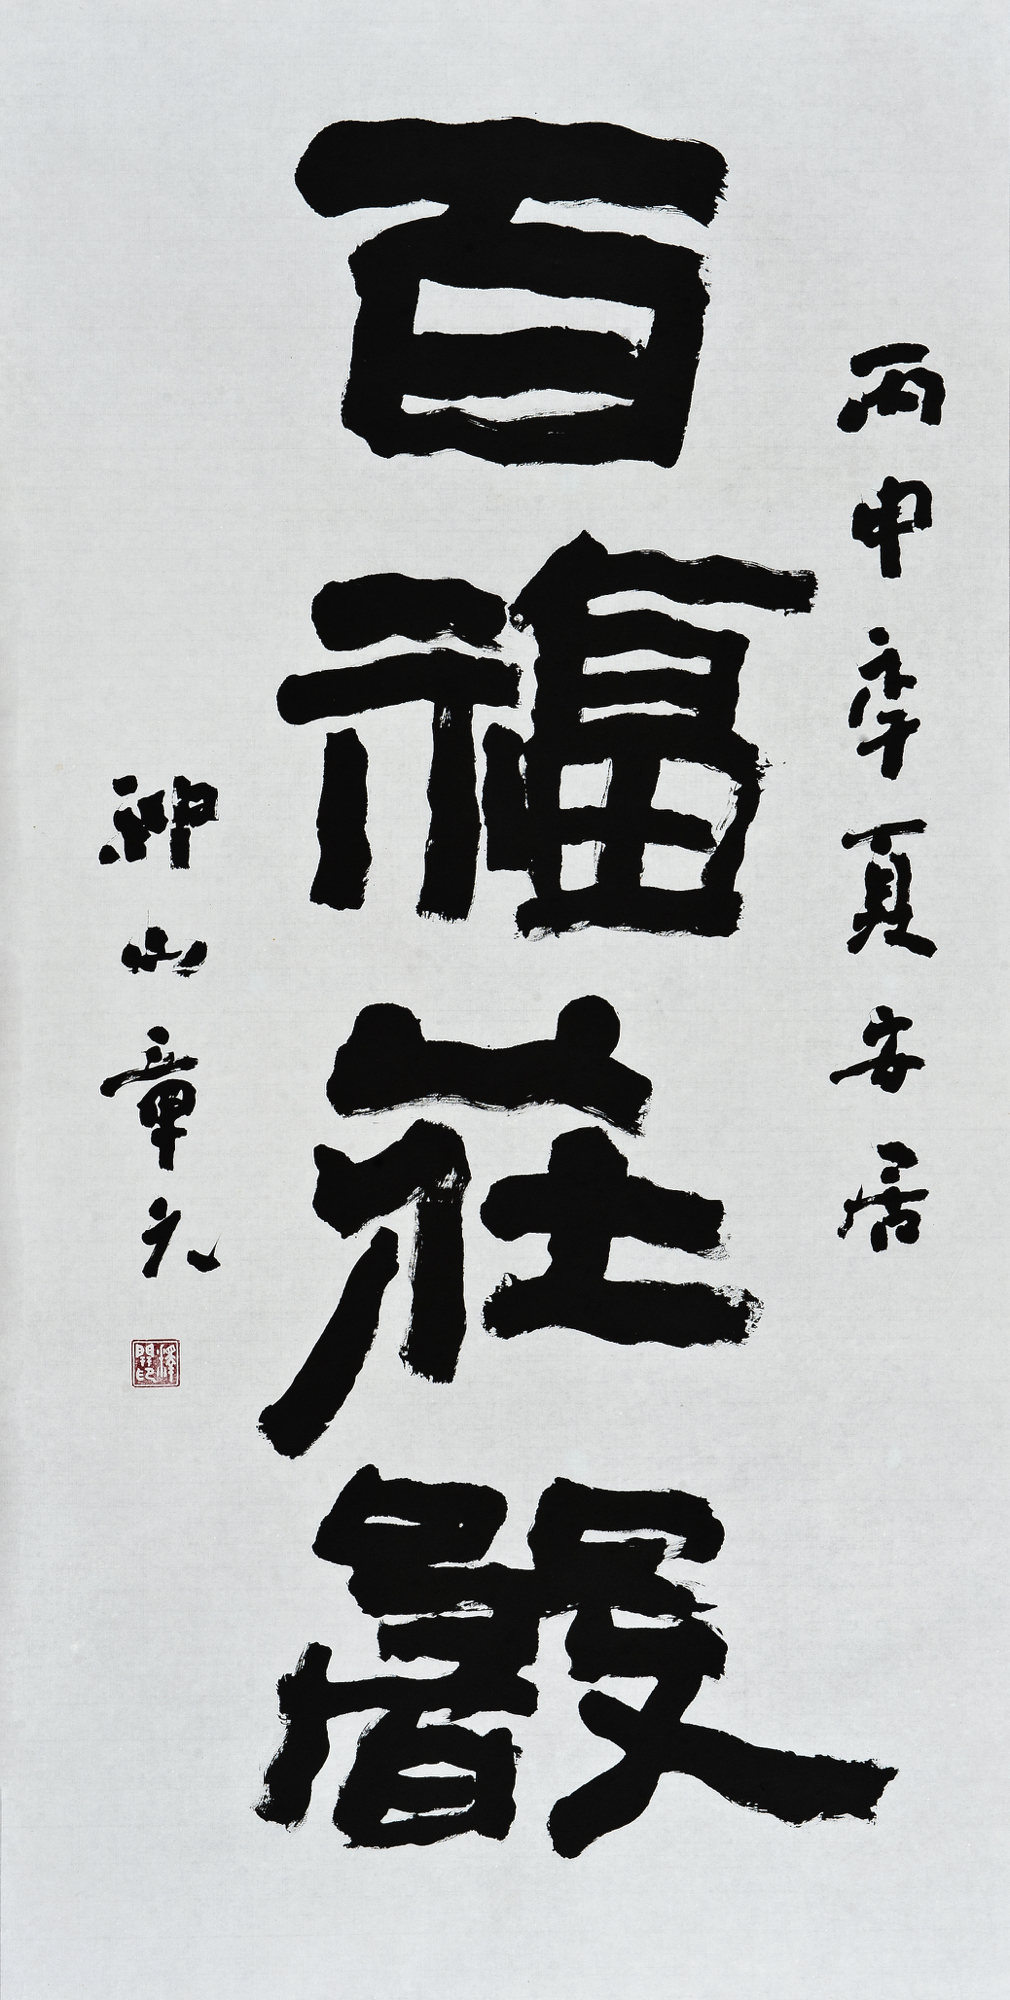 丙申季夏安居
百福莊嚴
神山章元